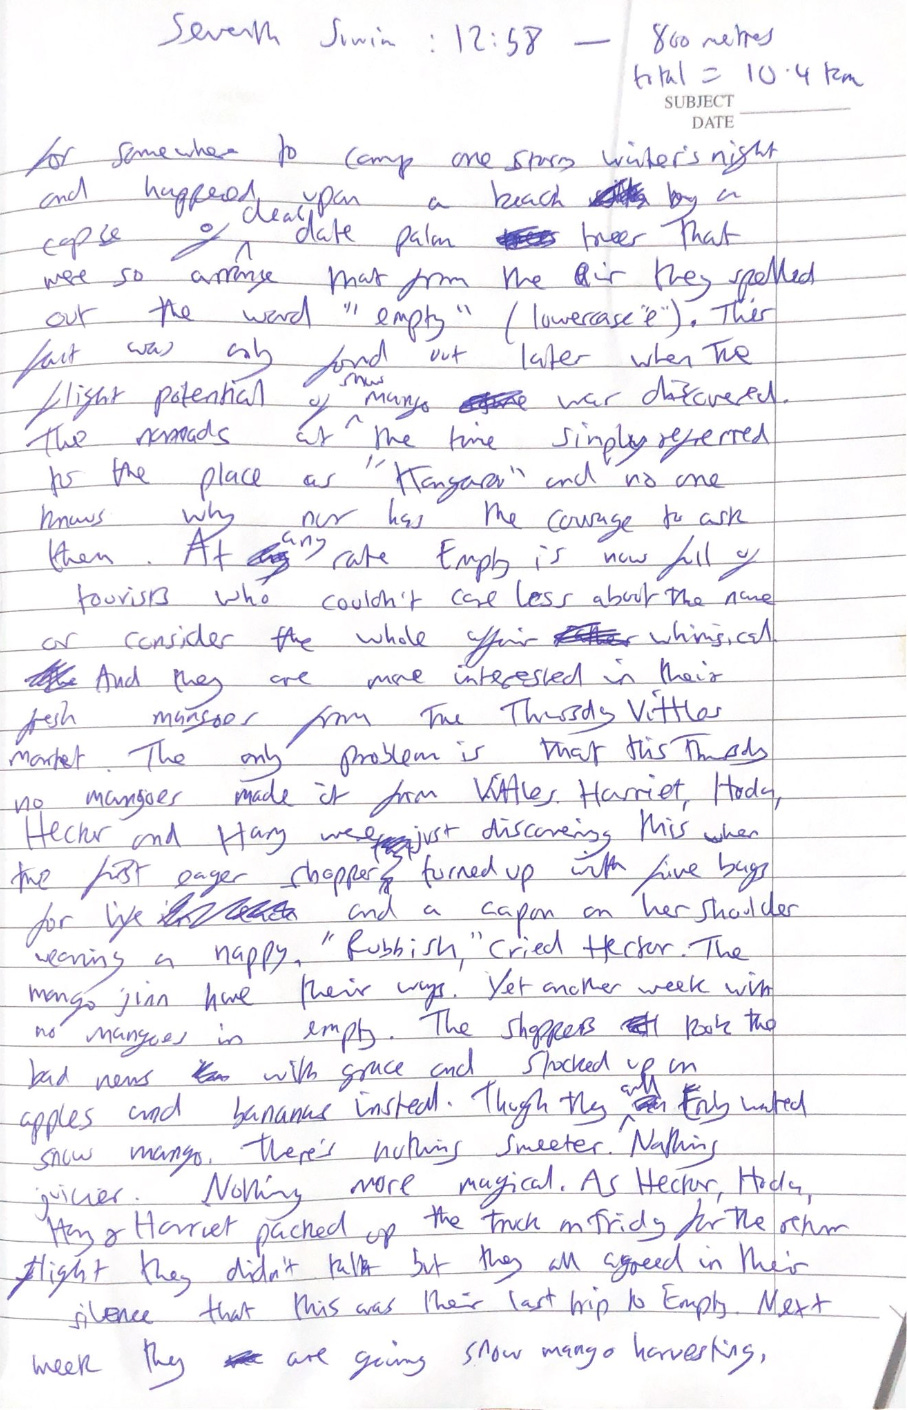 Seventh Swim : 12:58 — 800 metres
total = 10.4 km
SUBJECT
DATE
for somewhere to camp one stormy winter's night
and happened upon a beach by a
copse of dead date palm trees that
were so arrange that from the air they spelled
out the word "empty" (lowercase "e"). This
fact was only found out later when the
flight potential of snow mango was discovered.
The nomads at the time simply referred
to the place as "Kangaroo" and no one
knows why nor has the courage to ask
them. At any rate Empty is now full of
tourists who couldn't care less about the name
or consider the whole affair whimsical
And they are more interested in their
fresh mangoes from the Thursday Vittles
market. The only problem is that this Thursday
no mangoes made it from Vittles. Harriet, Hody,
Hector and Harry were just discovering this when
the first eager shopper turned up with five bags
for life and a capon on her shoulder
wearing a nappy. "Rubbish," cried Hector. The
mango jinn have their ways. Yet another week with
no mangoes in empty. The shoppers took the
bad news with grace and stocked up on
apples and bananas instead. Though they all only wanted
snow mango. There's nothing sweeter. Nothing
juicier. Nothing more magical. As Hector, Hody,
Harry & Harriet packed up the truck on Friday for the return
flight they didn't talk but they all agreed in their
silence that this was their last trip to Empty. Next
week they are going snow mango harvesting.